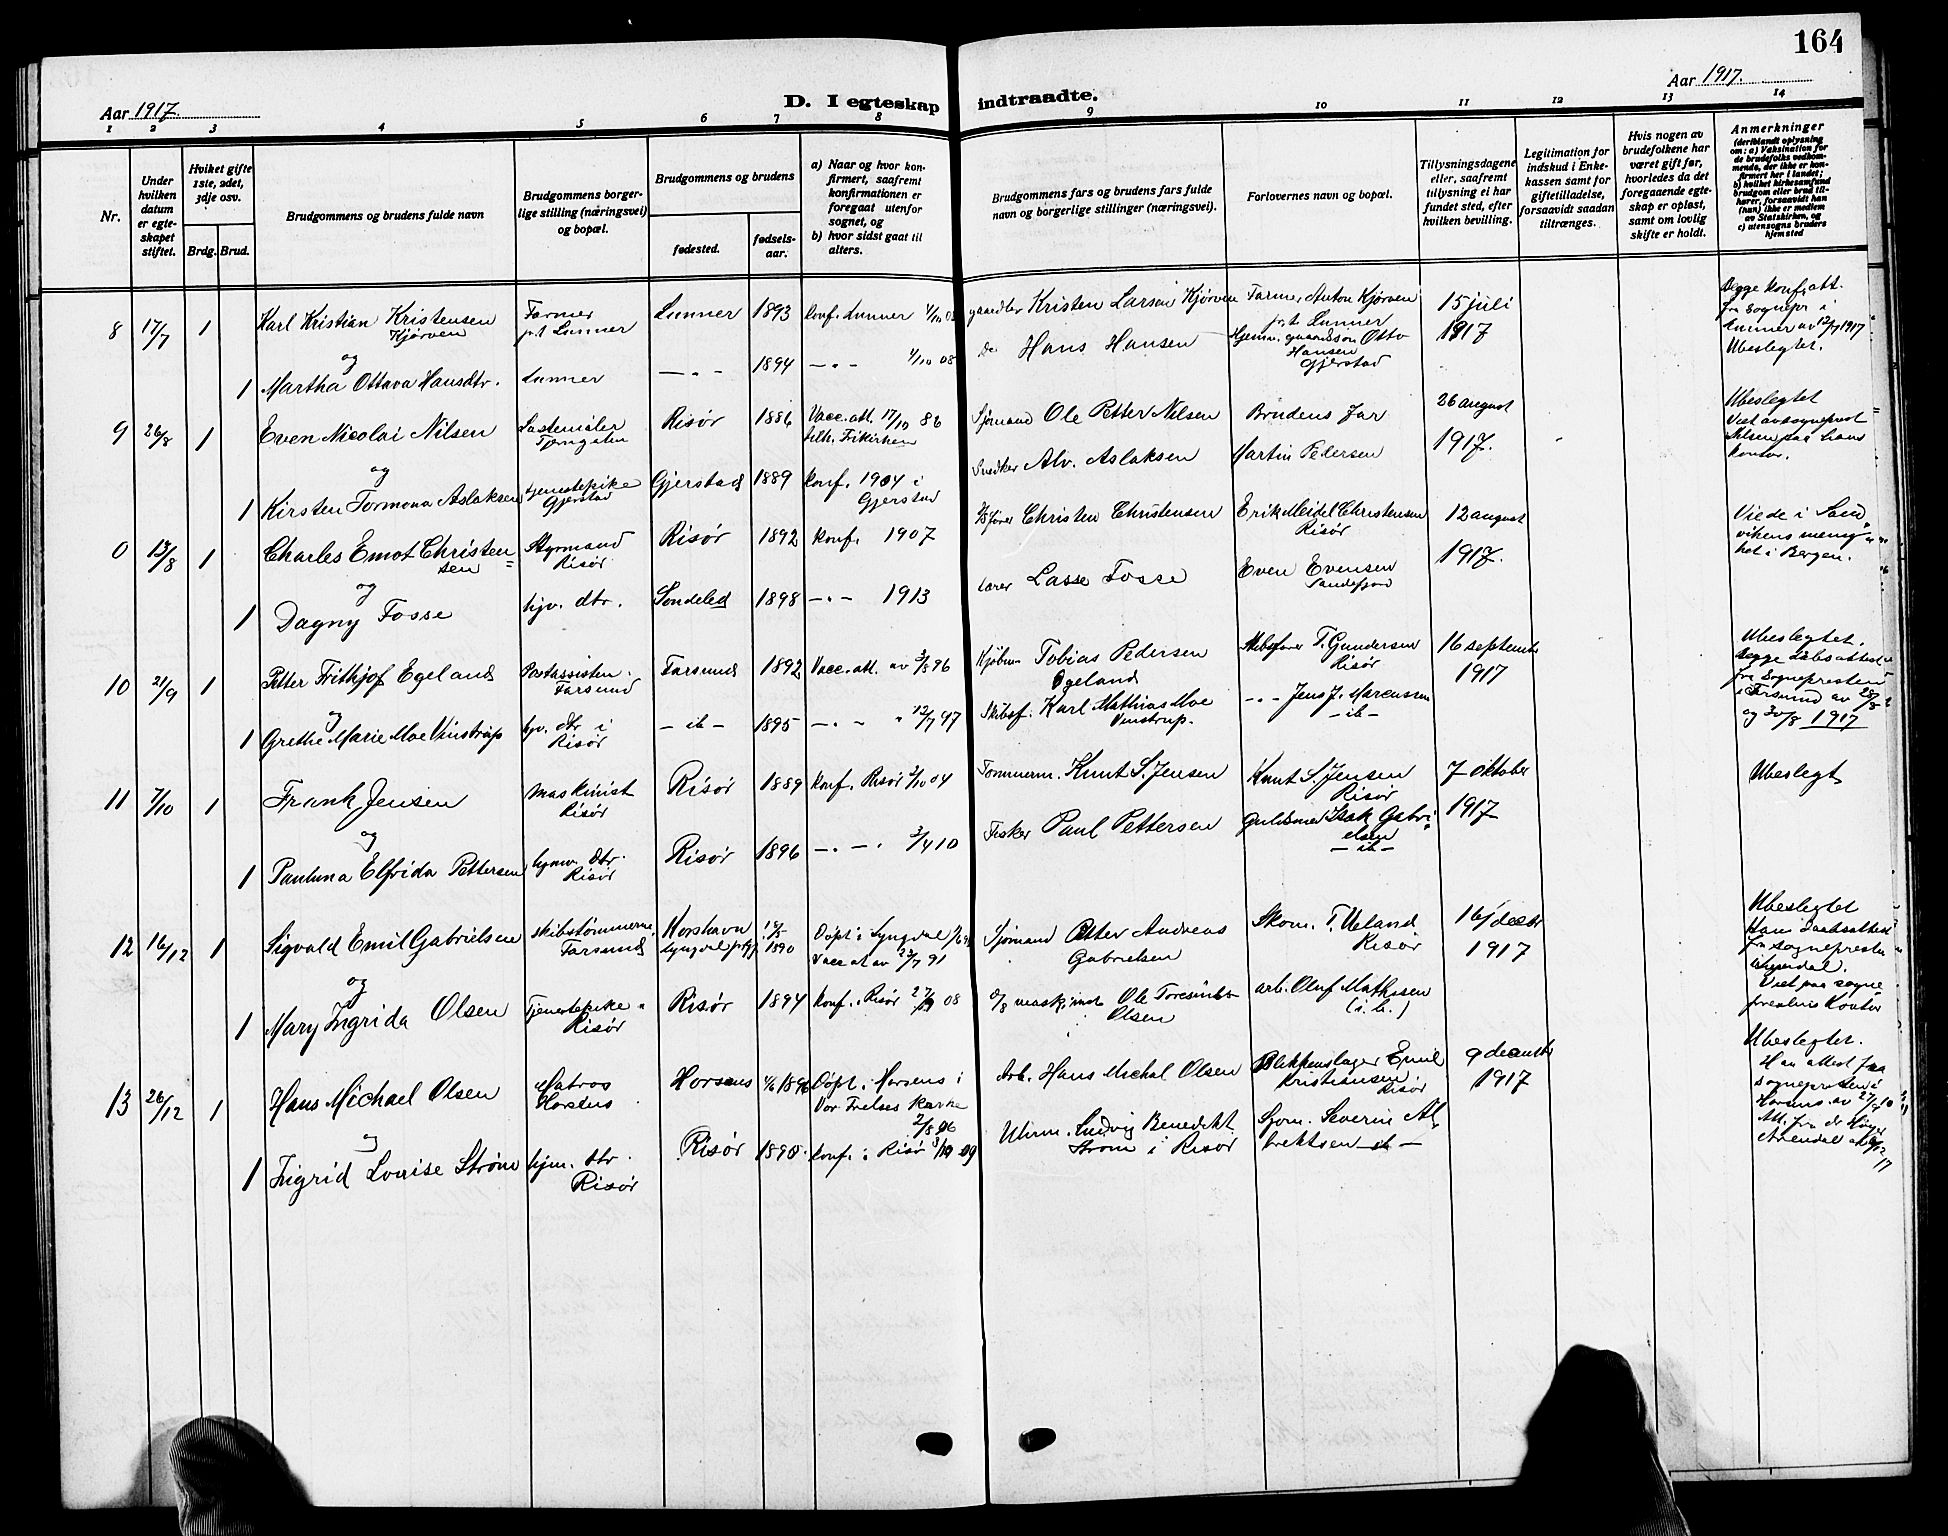 164
Aar 1917.
D. I egteskap
indtraadte.
Aar 1917.
1 2 3 4 5 6 7 8 9 10 11 12 13 14
Nr.
Under hvilken datum er egteskapet stiftet.
Hviket gifte 1ste, 2det, 3dje osv.
Brdg. Brud.
Brudgommens og brudens fulde navn
Brudgommens borgerlige stilling (næringsvei) og bopæl.
Brudgommens og brudens
fødested.
fødselsaar.
a) Naar og hvor konfirmert, saafremt konfirmationen er foregaat utenfor sognet, og
b) hvor sidst gaat til alters.
Brudgommens fars og brudens fars fulde navn og borgerlige stillinger (næringsvei).
Forlovernes navn og bopæl.
Tillysningsdagene eller, saafremt tillysning ei har fundet sted, efter hvilken bevilling.
Legitimation for indskud i Enkekassen samt for giftetilladelse, forsaavidt saadan tiltrænges.
Hvis nogen av brudefolkene har været gift før, hvorledes da det foregaaende egteskap er opløst, samt om lovlig skifte er holdt.
Anmerkninger (deriblandt oplysning om: a) Vaksination for de brudefolks vedkommende, der ikke er konfirmert her i landet; b) hvilket kirkesamfund brudgom eller brud tilhører, forsaavidt han (hun) ikke er medlem av Statskirken, og c) utensogns bruders hjemsted
8 17/7 1 Karl Kristian Kristensen Kjørven Farmer p.t. Lunner Lunner 1893 Konf. Lunner Kristen Larsen Kjørven Farmer Anton Kjørven p.t. Lunner 15 juli 1917 Begge konf. att. fra sognepr i Lunner av 12/7 1917 Ubeslegtet.
og
1 Martha Ottava Hansdtr. Lunner — " — 1894 — " — 4/10 08 Do Hans Hansen Otto Hansen Gjerstad
9 26/8 1 Even Nicolai Nilsen Risør 1886 Vacc. att. 17/10 86 tilh. Frikirken Sjømand Ole Petter Nilsen Brudens Far 26 august 1917. Ubeslegtet Viet av sogneprest Nilsen paa hans kontor.
og
1 Kirsten Tormona Aslaksen tjenestepike Gjerstad Gjerstad 1889 Konf. 1904 i Gjerstad Snedker Alv. Aslaksen Martin Pedersen
0 13/8 1 Charles Emot Christensen Styrmand Risør Risør 1892 Konf. 1907 Christen Christensen Erik Meidel Christensen Risør 12 august 1917. Viede i Sandvikens menighet i Bergen.
og
1 Dagny Fosse hjv. dtr. Søndeled 1898 — " — 1913 lærer Lasse Fosse Even Evensen Sandefjord
10 21/9 1 Petter Frithjof Egeland Postassisten Farsund Farsund 1892 Vacc. att. av 3/8 96 Kjøbm Tobias Pedersen Egeland Skibsfører T. Gundersen Risør 16 septembr 1917 Ubeslegtet. Begge daabsattest fra sognepresten i Farsund av 28/8 og 30/8 1917
og
1 Grethe Marie Moe Vinstrup hjv. dtr i Risør — ib — 1895 — " — " 12/7 97 Skibsf. Karl Mathias Moe Vinstrup. — " — Jens J. Marcussen — ib —
11 7/10 1 Frank Jensen Maskinist Risør Risør 1889 Konf. Risør 2/10 04 Tømmerm. Knut S. Jensen Knut S. Jensen Risør 7 oktober 1917 Ubeslegt
og
1 Pauluna Elfrida Pettersen hjmv. dtr. Risør Risør 1896 — " — " 3/4 10 Fisker Paul Pettersen Guldsmed Isak Gabrielsen — ib —
12 16/12 1 Sigvald Emil Gabrielsen skibstømmerm. Farsund Korshavn 18/5 1890 Døpt i Lyngdal Vacc at av 23/7 91 Sjømand Petter Andreas Gabrielsen Skom. T. Ueland Risør 16 decbr 1917 Ubeslegtet Hans Daabsattest fra sognepresten Viet paa sogneprestens Kontor
og
1 Mary Ingrida Olsen Tjenestepike Risør Risør 1894 Konf. i Risør 08 d/s maskinist Ole Olsen arb. Oluf Mathisen (i.b.)
13 26/12 1 Hans Michael Olsen Matros Horsens Horsens 1896 Døpt i Horsens i Vor Frelses kirke 2/8 96 Arb. Hans Michal Olsen Blikkenslager Emil Kristiansen Risør 9 decembr 1917 Ubeslegtet. Han attest fra sognepresten i Horsens av 27/ Att. fra dr Arendal
og
1 Ingrid Lovise Strøm hjm. dtr. Risør Risør 1895 Konf. i Risør 09 Uhrm. Ludvig Benedikt Strøm i Risør Sjøm. Severin Albrektsen — ib —